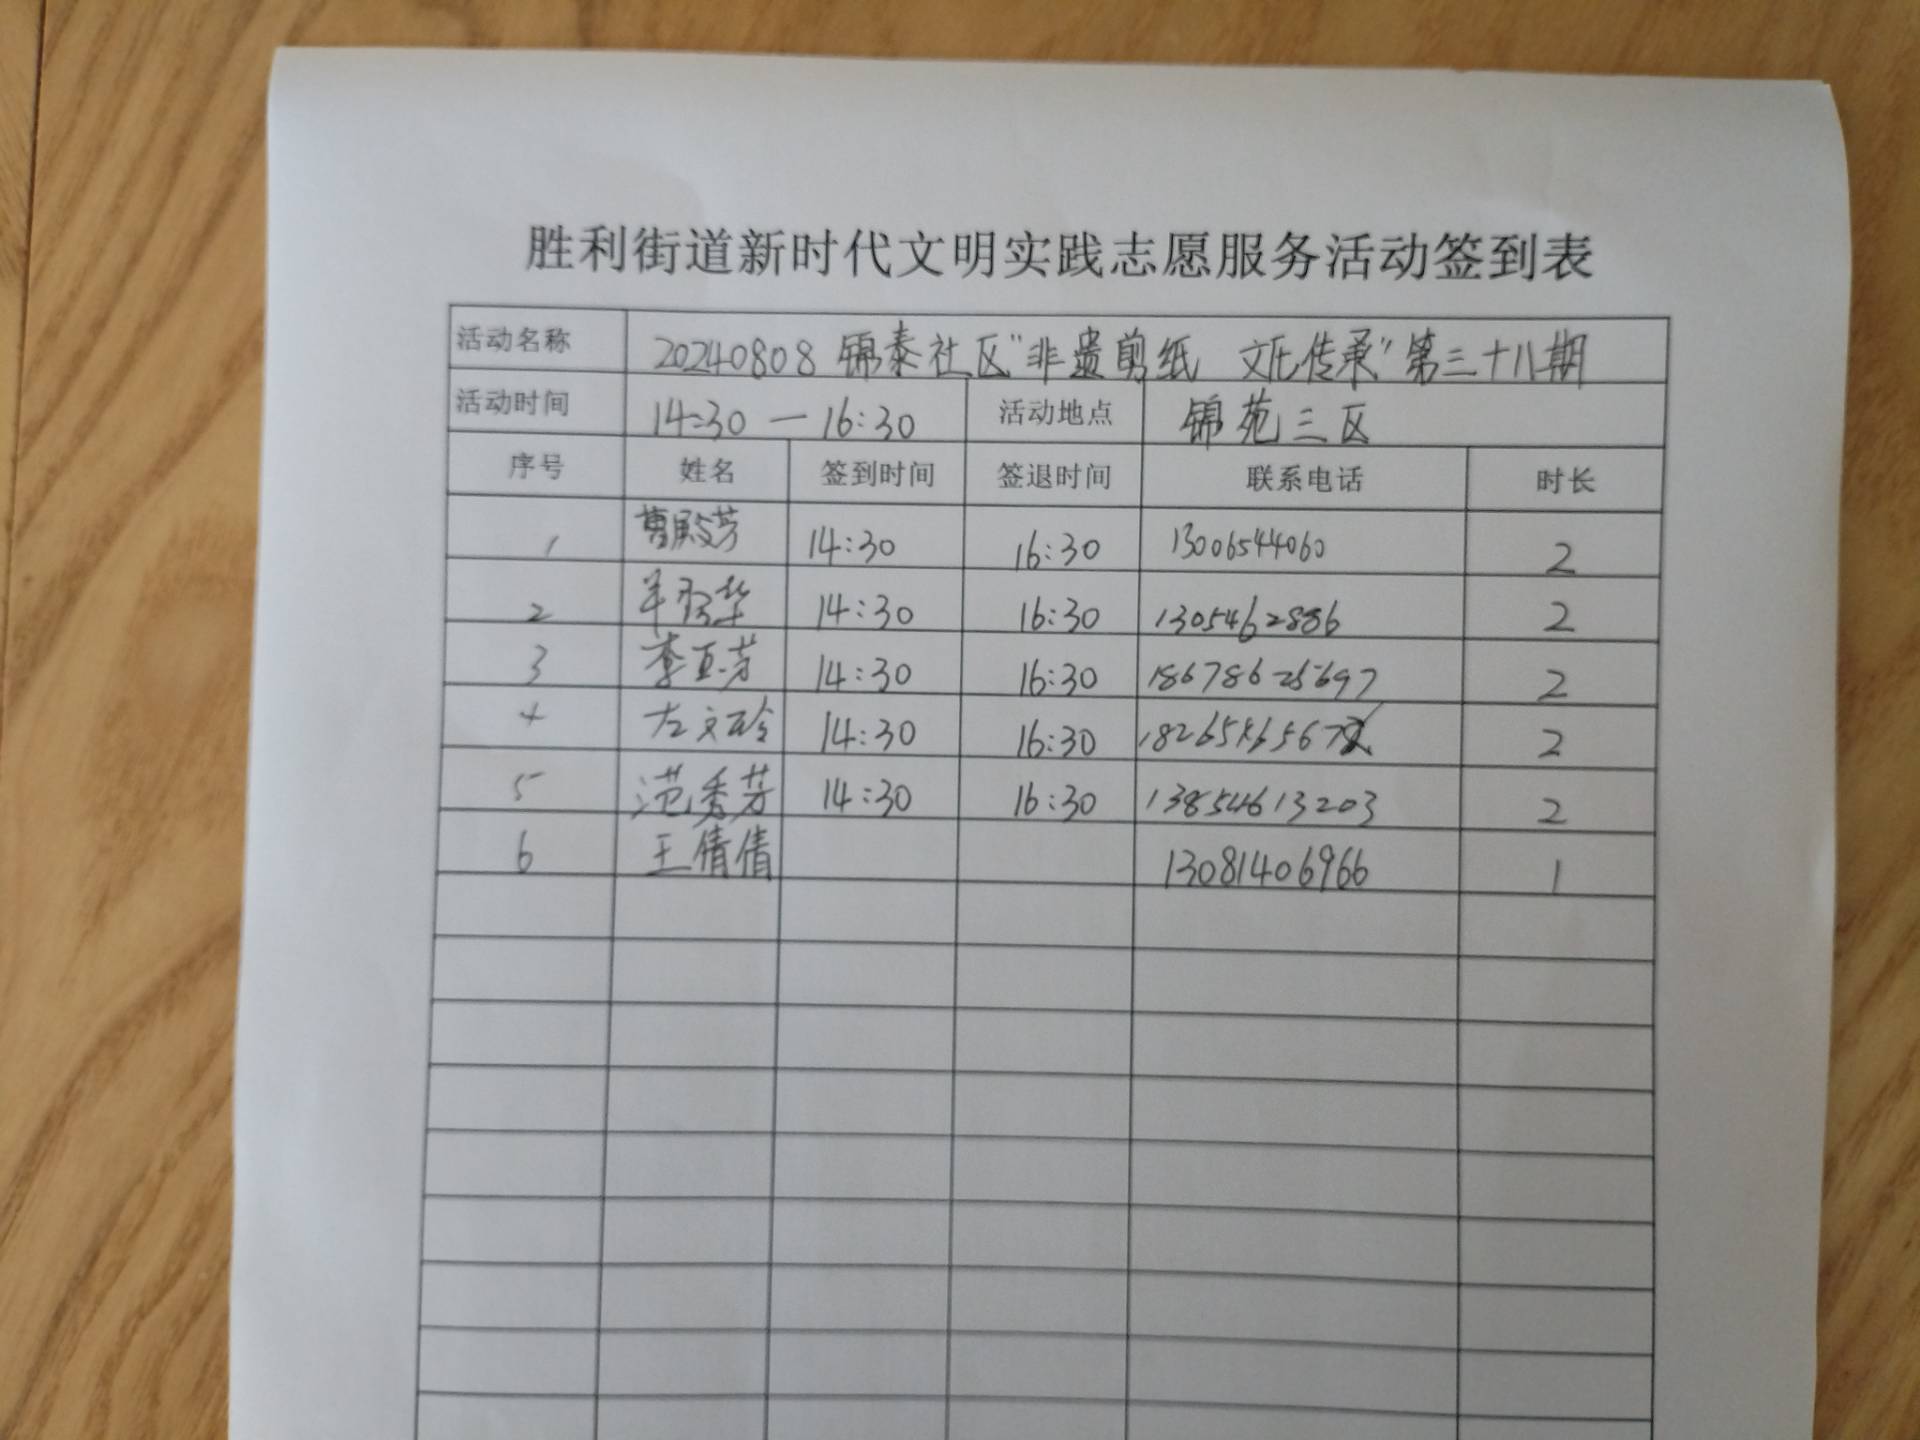 胜利街道新时代文明实践志愿服务活动签到表
活动名称 20240808 锦泰社区"非遗剪纸 文化传承"第三十八期
活动时间 14:30 — 16:30 活动地点 锦苑三区
序号 姓名 签到时间 签退时间 联系电话 时长
1 曹殿芳 14:30 16:30 13006544060 2
2 14:30 16:30 2
3 李亚芳 14:30 16:30 18678625697 2
4 左文玲 14:30 16:30 2
5 范秀芳 14:30 16:30 13854613203 2
6 王倩倩 13081406966 1